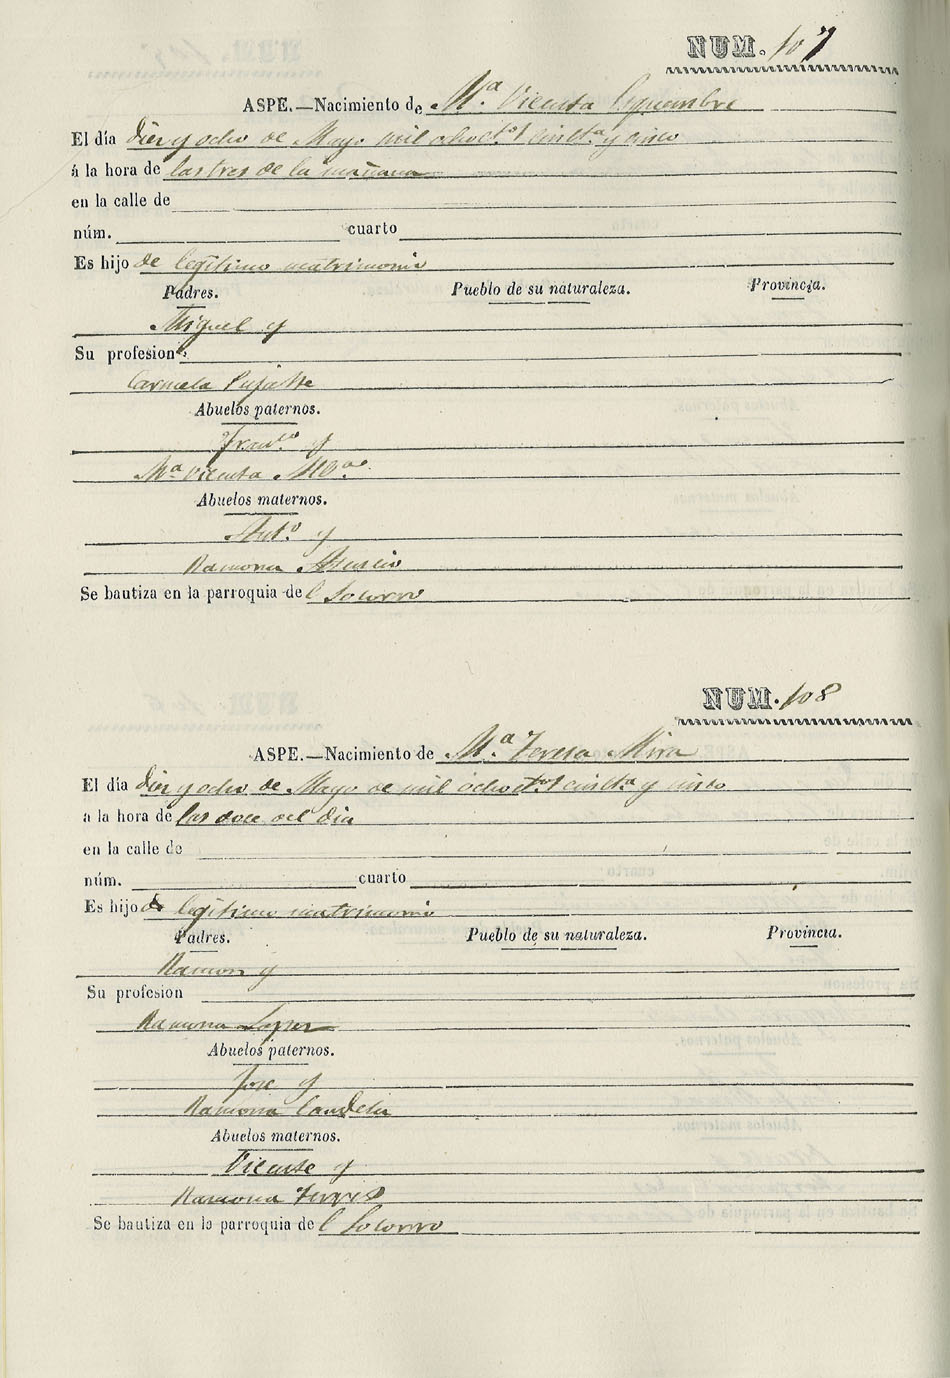 NUM. 107
ASPE.—Nacimiento de Mª Vicenta
El día diez y ocho de Mayo mil ochoctos cincta y cinco
á la hora de las tres de la mañana
en la calle de
núm. cuarto
Es hijo de legitimo matrimonio
Padres. Pueblo de su naturaleza. Provincia.
Miguel y
Su profesion
Carmela Pujalte
Abuelos paternos.
Franco y
Mª Vicenta
Abuelos maternos.
Anto y
Ramona Asencio
Se bautiza en la parroquia del Socorro
NUM. 108
ASPE.—Nacimiento de Mª Teresa Mira
El día diez y ocho de Mayo de mil ochoctos cincta y cinco
a la hora de las doce del dia
en la calle de
núm. cuarto
Es hijo de legitimo matrimonio
Padres. Pueblo de su naturaleza. Provincia.
Ramon y
Su profesion
Ramona Lopez
Abuelos paternos.
Jose y
Ramona Candela
Abuelos maternos.
Vicente y
Ramona
Se bautiza en la parroquia del Socorro